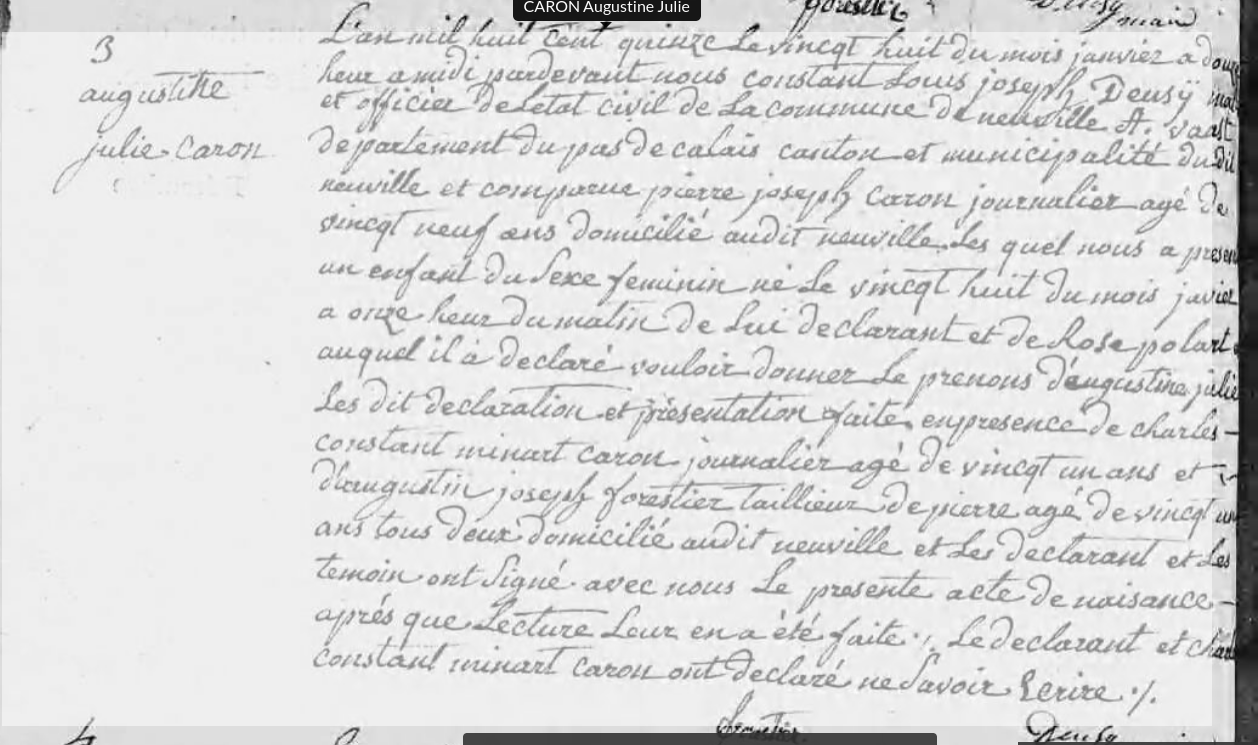 CARON Augustine Julie
forestier Deusy
mair
3
augustine
julie Caron
L'an mil huit cent quinze Le vincqt huit du mois janvier a douze
heur a midi pardevant nous constant Louis joseph Deusÿ mair
et officier de Letat civil de La commune de neuville St. vaast
departement du pas de calais canton et municipalité du dit
neuville et comparue pierre joseph Caron journalier agé de
vincqt neuf ans domicilié audit neuville Les quel nous a presen
un enfant du Sexe feminin né Le vincqt huit du mois javier
a onze heur du matin de Lui declarant et de Rose polart
auquel il à declaré vouloir donner Le prenous d'augustine julie
Les dit declaration et présentation faite en presence de charles -
constant minart caron journalier agé de vincqt un ans et
d'augustin joseph forestier taillieur de pierre agé de vincqt un
ans tous deux domicilié audit neuville et Les declarant et Les
temoin ont Signé avec nous Le presente acte de naisance -
aprés que Lecture Leur en a été faite ./. Le declarant et charles
constant minart caron ont declaré ne Savoir Ecrire ./.
4
forestier Deusy